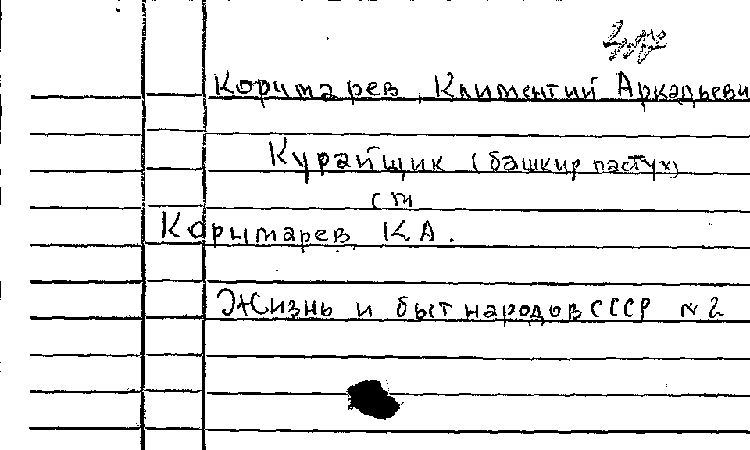 Корымарев, Климентий Аркадьеви
Курайщик (башкир пастух)
см
Корымарев, К А.
Жизнь и быт народов СССР № 2